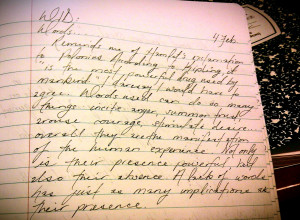 4 Feb
Words:
Reminds me of Hamlet's
to Polonius. According to Kipling, it
is the "most powerful drug used by
mankind." I would have to
agree. Words used can do so many
things incite anger, summon trust
arouse courage, stimulate desire...
overall they are the manifestation
of the human experience. Not only
is their presence powerful, but
also their absence. A lack of words
has just as many implications as
their presence.